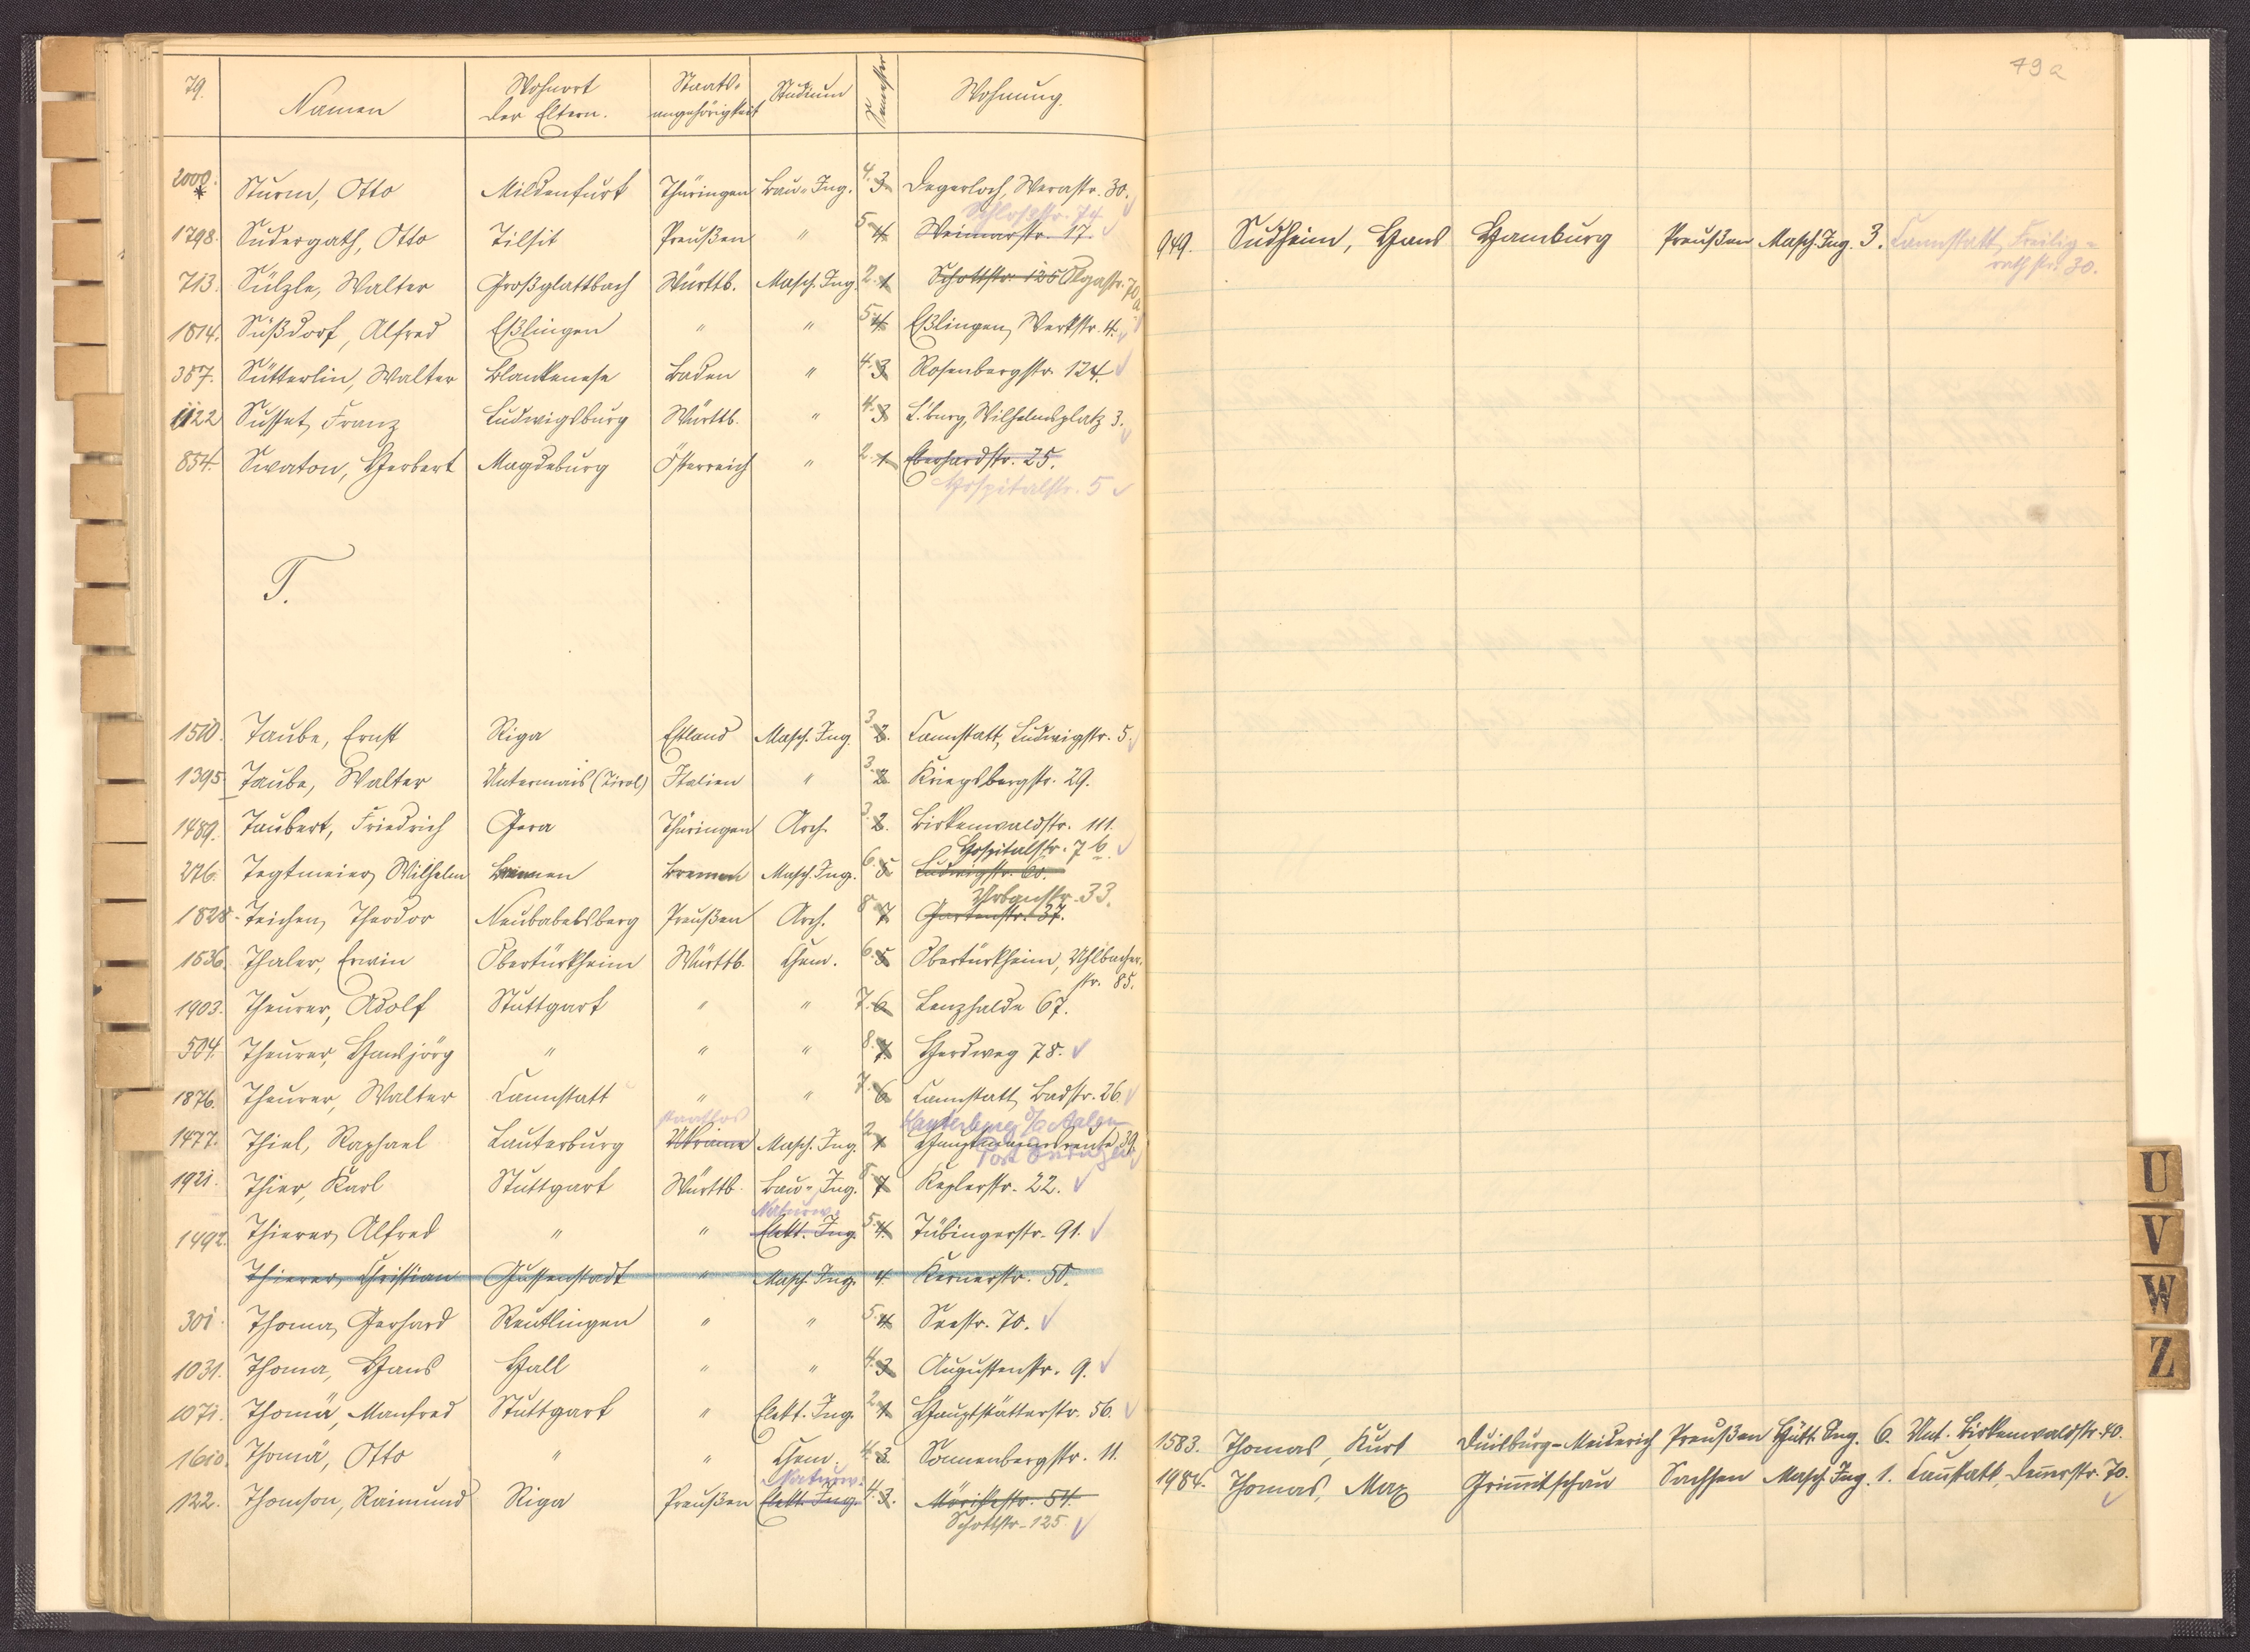 79.
Namen
Wohnort der Eltern.
Staats-angehörigkeit
Studium
Semester
Wohnung.
2000. * Sturm, Otto Mildenfurt Thüringen Bau-Ing. 4. 3. Degerloch, Werastr. 30.
Schloßstr. 74
1798. Sudergath, Otto Tilsit Preußen " 5 4. Weimarstr. 17.
713. Sülzle, Walter Großglattbach Württb. Masch. Ing. 2. 1 Schottstr. 125 Olgastr. 70a
1814. Süßdorf, Alfred Eßlingen " " 5 4. Eßlingen, Werkstr. 4.
357. Sütterlin, Walter Blankenese Baden " 4. 3 Rosenbergstr. 124.
1122 Susset, Franz Ludwigsburg Württb. " 4. 3 L'burg, Wilhelmsplatz 3.
854. Swaton, Herbert Magdeburg Österreich " 2. 1. Eberhardstr. 25.
Hospitalstr. 5
T.
1510. Taube, Ernst Riga Estland Masch. Ing. 3. 2. Cannstatt, Ludwigstr. 5.
1395 Taube, Walter Untermais (Tirol) Italien " 3. 2 Kriegsbergstr. 29.
1489. Taubert, Friedrich Gera Thüringen Arch. 3. 2. Birkenwaldstr. 111.
Hospitalstr. 7 b.
276. Tegtmeier, Wilhelm Bremen Bremen Masch. Ing. 6. 5 Ludwigstr. 60.
Urbanstr. 33.
1828. Teichen, Theodor Neubabelsberg Preußen Arch. 8 7. Gartenstr. 37.
1536. Thaler, Erwin Obertürkheim Württb. Chem. 6. 5 Obertürkheim, Uhlbacher-
str. 85.
1903. Theurer, Adolf Stuttgart " " 7. 6 Lenzhalde 67.
504. Theurer, Hansjörg " " " 8. 7. Herdweg 78.
1876. Theurer, Walter Cannstatt " " 7. 6 Cannstatt, Badstr. 26.
staatlos Lauterburg O/A Aalen
1477. Thiel, Raphael Lauterburg Ukraine Masch. Ing. 2. 1 Hauptmannsreute 39.
Post
1921. Thier, Karl Stuttgart Württb. Bau-Ing. 8 7 Keplerstr. 22.
Naturw.
1492. Thierer, Alfred " " Elekt. Ing. 5. 4. Tübingerstr. 91.
Thierer, Christian Gussenstadt " Masch. Ing. 4. Kernerstr. 50.
301. Thoma, Gerhard Reutlingen " " 5 4. Seestr. 70.
1031. Thoma, Hans Hall " " 4. 3 Augustenstr. 9.
1071. Thomä, Manfred Stuttgart " Elekt. Ing. 2 1 Hauptstätterstr. 56.
1610. Thomä, Otto " " Chem. 4. 3 Sonnenbergstr. 11.
Naturw.
122. Thomson, Raimund Riga Preußen Elekt. Ing. 4. 3. Mörikestr. 54.
Schottstr. 125
79 a
949. Südheim, Hans Hamburg Preußen Masch. Ing. 3. Cannstatt, Freilig-
rathstr. 30.
1583. Thomas, Kurt Duisburg-Meiderich Preußen Hütt. Ing. 6. Unt. Birkenwaldstr. 40.
1984. Thomas, Max Crimmitschau Sachsen Masch. Ing. 1. Cannstatt, 70.
U
V
W
Z